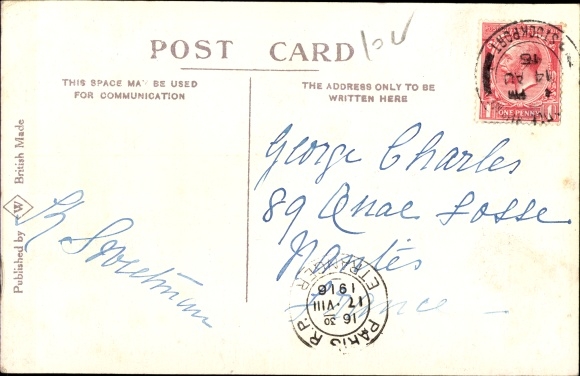 POST CARD
THIS SPACE MAY BE USED
FOR COMMUNICATION
THE ADDRESS ONLY TO BE
WRITTEN HERE
STOCKPORT
PM
14 AU
16
ONE PENNY
George Charles
89 Quae Fosse
Nantes
France
PARIS R.P.
ETRANGER
16 30
17 · VIII
1916
Published by W British Made